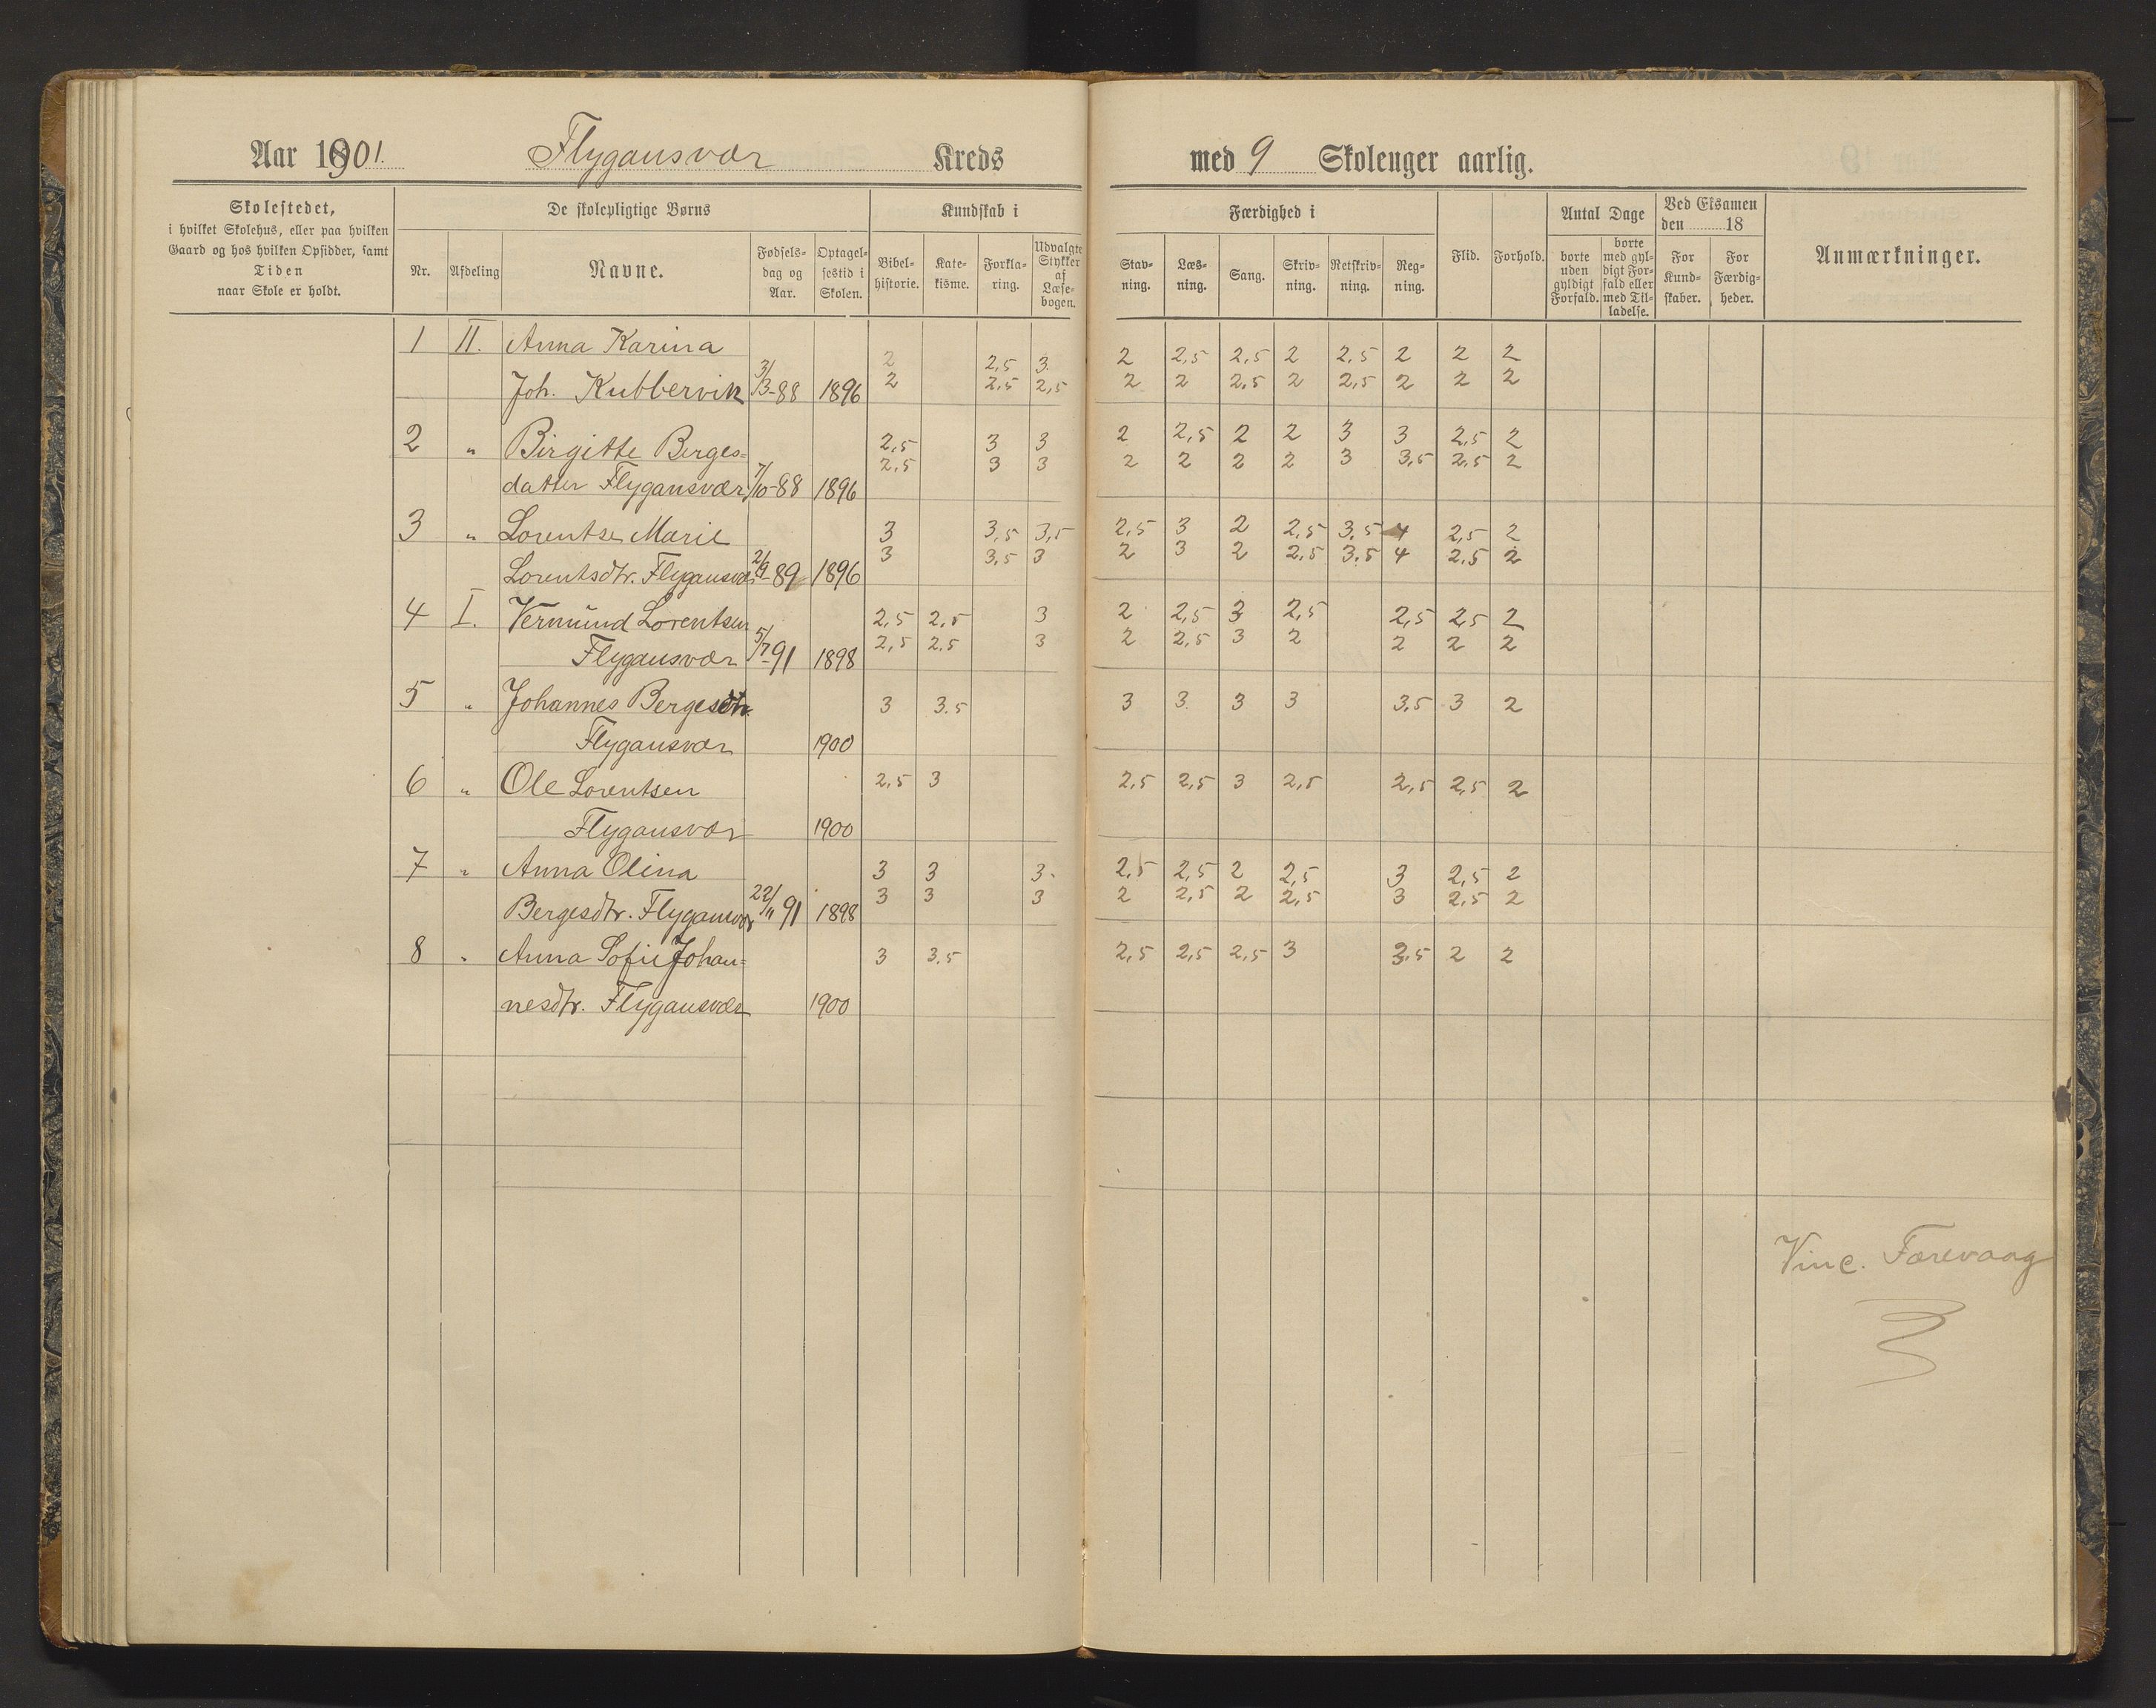 Aar 1901. Flygansvær Kreds med 9 Skolenger aarlig.
Skolestedet,
i hvilket Skolehus, eller paa hvilken
Gaard og hos hvilken Opsidder, samt
Tiden
naar Skole er holdt.
De skolepligtige Børns
Nr. Afdeling Navne. Fødsels-
dag og
Aar. Optagel-
sestid i
Skolen.
Kundskab i
Bibel-
historie. Kate-
kisme. Forkla-
ring. Udvalgte
Stykker
af
Læse-
bogen.
Færdighed i
Stav-
ning. Læs-
ning. Sang. Skriv-
ning. Retskriv-
ning. Reg-
ning.
Flid. Forhold.
Antal Dage
borte
uden
gyldigt
Forfald. borte
med gyl-
digt For-
fald eller
med Til-
ladelse.
Ved Eksamen
den 18
For
Kund-
skaber. For
Færdig-
heder.
Anmærkninger.
1 II. Anna Karina 2 2,5 3. 2 2,5 2,5 2 2,5 2 2 2
Joh. Kubbervik 3/3-88 1896 2 2,5 2,5 2 2 2,5 2 2,5 2 2 2
2 " Birgitte Berges= 2,5 3 3 2 2,5 2 2 3 3 2,5 2
datter Flygansvær 7/10-88 1896 2,5 3 3 2 2 2 2 3 3,5 2,5 2
3 " Lorentse Marie 3 3,5 3,5 2,5 3 2 2,5 3,5 4 2,5 2
Lorentsdtr. Flygansvær 2/9-89 1896 3 3,5 3 2 3 2 2,5 3,5 4 2,5 2
4 I. Vermund Lorentsen 2,5 2,5 3 2 2,5 3 2,5 2,5 2,5 2
Flygansvær 5/7-91 1898 2,5 2,5 3 2 2,5 3 2 2 2 2
5 " Johannes Bergesdtr. 3 3.5 3 3. 3 3 3.5 3 2
Flygansvær 1900
6 " Ole Lorentsen 2,5 3 2,5 2,5 3 2,5 2,5 2,5 2
Flygansvær 1900
7 " Anna Olina 3 3 3. 2,5 2,5 2 2,5 3 2,5 2
Bergesdtr. Flygansvær 22/11 91 1898 3 3 3 2 2,5 2 2,5 3 2,5 2
8 " Anna Sofie Johan= 3 3.5 2,5 2,5 2,5 3 3.5 2 2
nesdtr. Flygansvær 1900
Vinc. Færevaag